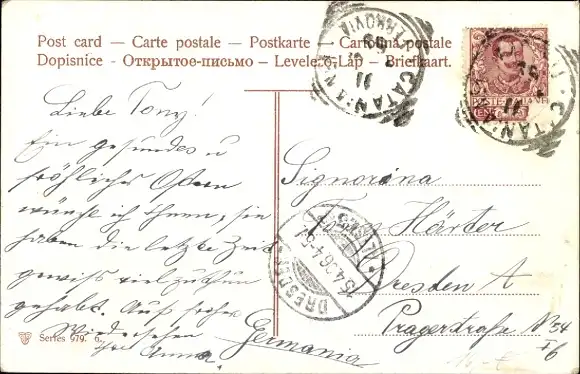 Post card — Carte postale — Postkarte — Cartolina postale
Dopisnice - Открытое-письмо – Levelező-Lap – Briefkaart.
CATANIA
FERROVIA
11
CATANIA
11
POSTE ITALIANE
Liebe Tony!
Ein gesundes u
fröhliches Ostern
wünsche ich Ihnen, sie
haben die letzte Zeit
gewiss viel zu tun
gehabt. Auf frohes
Wiedersehen
Ihre Anna.
Signorina
Härter
Dresden A
Pragerstraße No 54
Germania
DRESDEN
15.4.06.4-5
Series 979. 6.